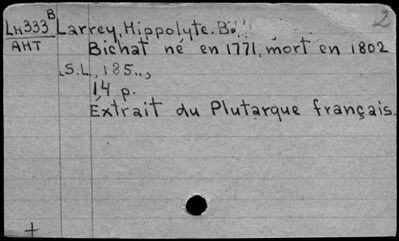 B 2
LH333 Larrey, Hippolyte. B.
AHT Bichat né en 1771, mort en 1802
S.L., 185..,
14 p.
Extrait du Plutarque français.